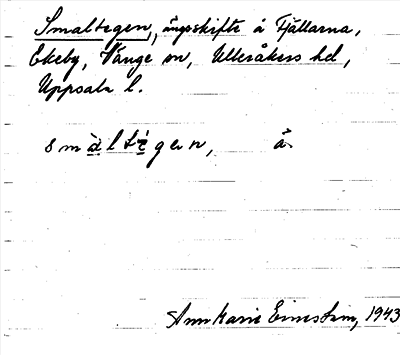 Smaltegen, ängsskifte å Fjällarna,
Ekeby, Vänge sn, Ulleråkers hd,
Uppsala l.
smàltégen, å
Ann Marie 1943